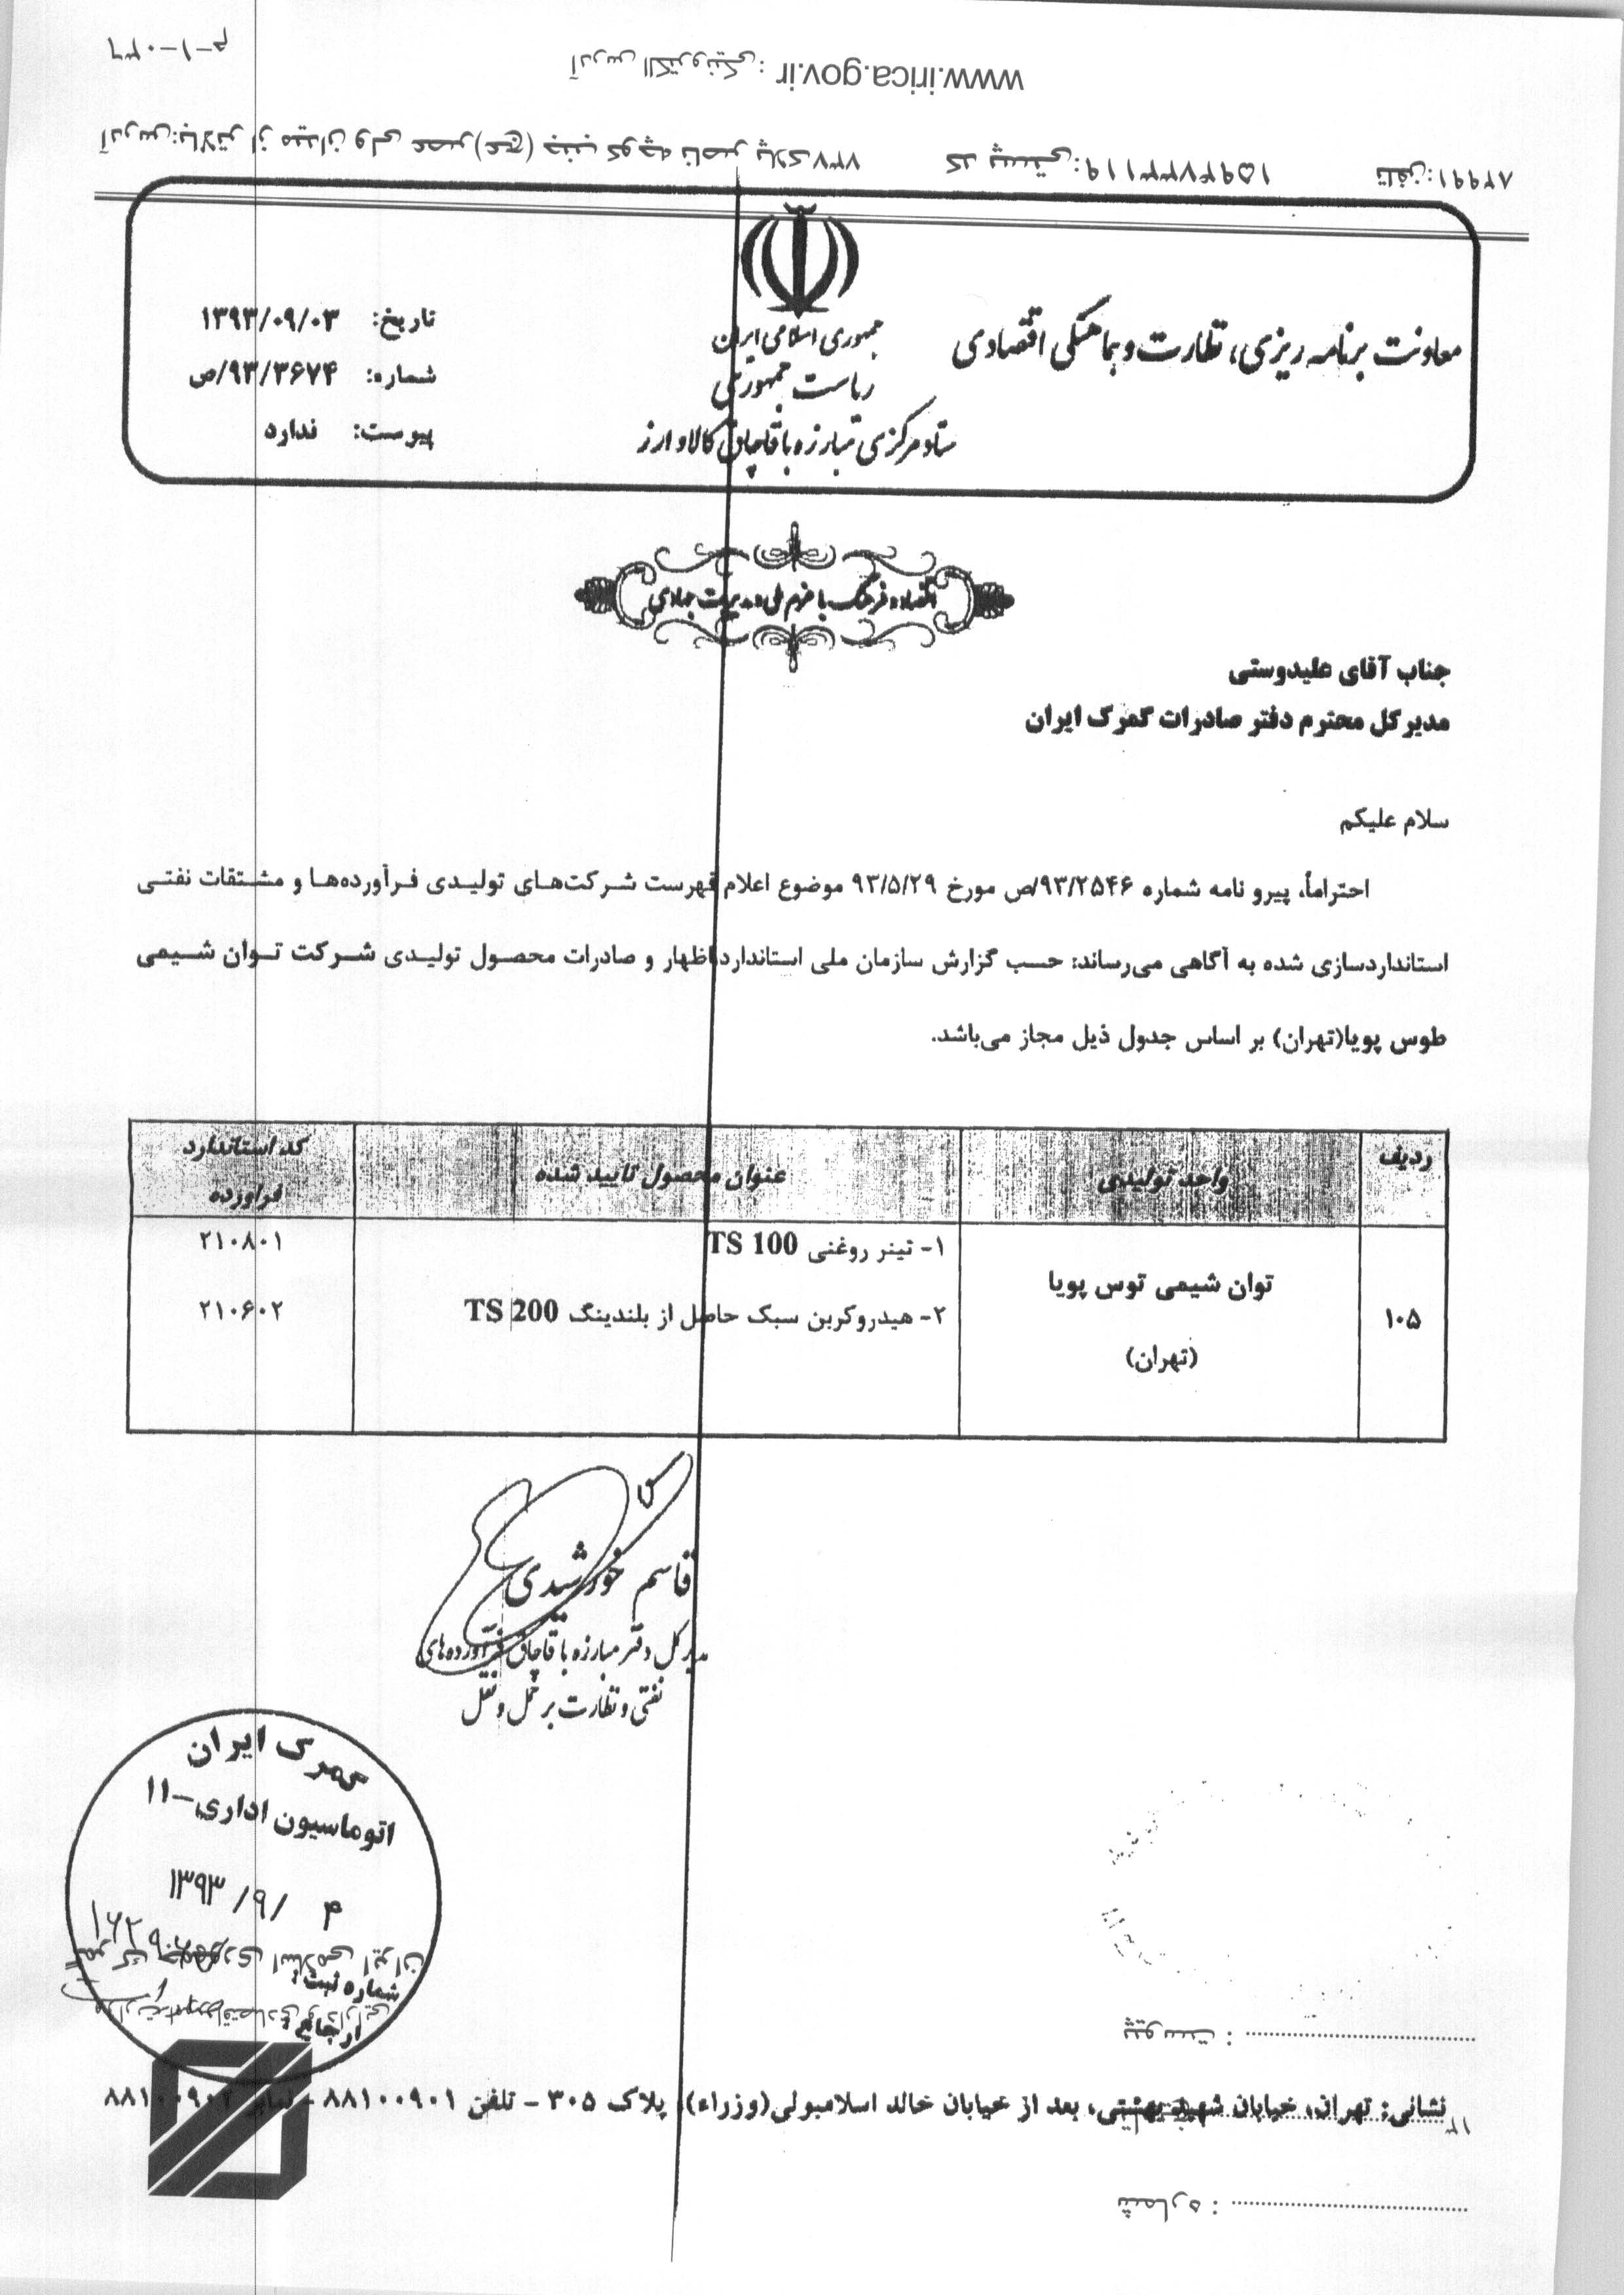 معاونت برنامه ریزی، نظارت و هماهنگی اقتصادی
جمهوری اسلامی ایران
ریاست جمهوری
ستاد مرکزی مبارزه با قاچاق کالا و ارز
تاریخ: ۱۳۹۳/۰۹/۰۳
شماره: ۹۳/۳۶۷۴/ص
پیوست: ندارد
اقتصاد و فرهنگ با عزم ملی و مدیریت جهادی
جناب آقای علیدوستی
مدیرکل محترم دفتر صادرات گمرک ایران
سلام علیکم
احتراماً، پیرو نامه شماره ۹۳/۲۵۴۶/ص مورخ ۹۳/۵/۲۹ موضوع اعلام فهرست شرکت‌های تولیدی فرآورده‌ها و مشتقات نفتی
استانداردسازی شده به آگاهی می‌رساند: حسب گزارش سازمان ملی استاندارد اظهار و صادرات محصول تولیدی شرکت توان شیمی
طوس پویا(تهران) بر اساس جدول ذیل مجاز می‌باشد.
ردیف واحد تولیدی عنوان محصول تایید شده کد استاندارد فرآورده
۱۰۵ توان شیمی توس پویا (تهران)
۱- تینر روغنی TS 100 ۲۱۰۸۰۱
۲- هیدروکربن سبک حاصل از بلندینگ TS 200 ۲۱۰۶۰۲
قاسم خورشیدی
مدیرکل دفتر مبارزه با قاچاق فرآورده‌های
نفتی و نظارت بر حمل و نقل
گمرک ایران
اتوماسیون اداری-۱۱
۱۳۹۳/۹/۴
شماره ثبت:
ارجاع:
نشانی: تهران، خیابان شهید بهشتی، بعد از خیابان خالد اسلامبولی(وزراء)، پلاک ۳۰۵ - تلفن ۸۸۱۰۰۹۰۱ - نمابر ۸۸۱۰۰۹۰۲
گمرک جمهوری اسلامی ایران
وزارت امور اقتصادی و دارایی
شماره :
پیوست :
آدرس:بالاتر از میدان ولی عصر (عج) جنب کوچه ناصر پلاک ۷۳۷ کد پستی: ۱۵۹۴۷۳۳۱۱۹ تلفن: ۸۲۹۹۱
آدرس الکترونیکی: www.irica.gov.ir
م-۱-۰۳۶